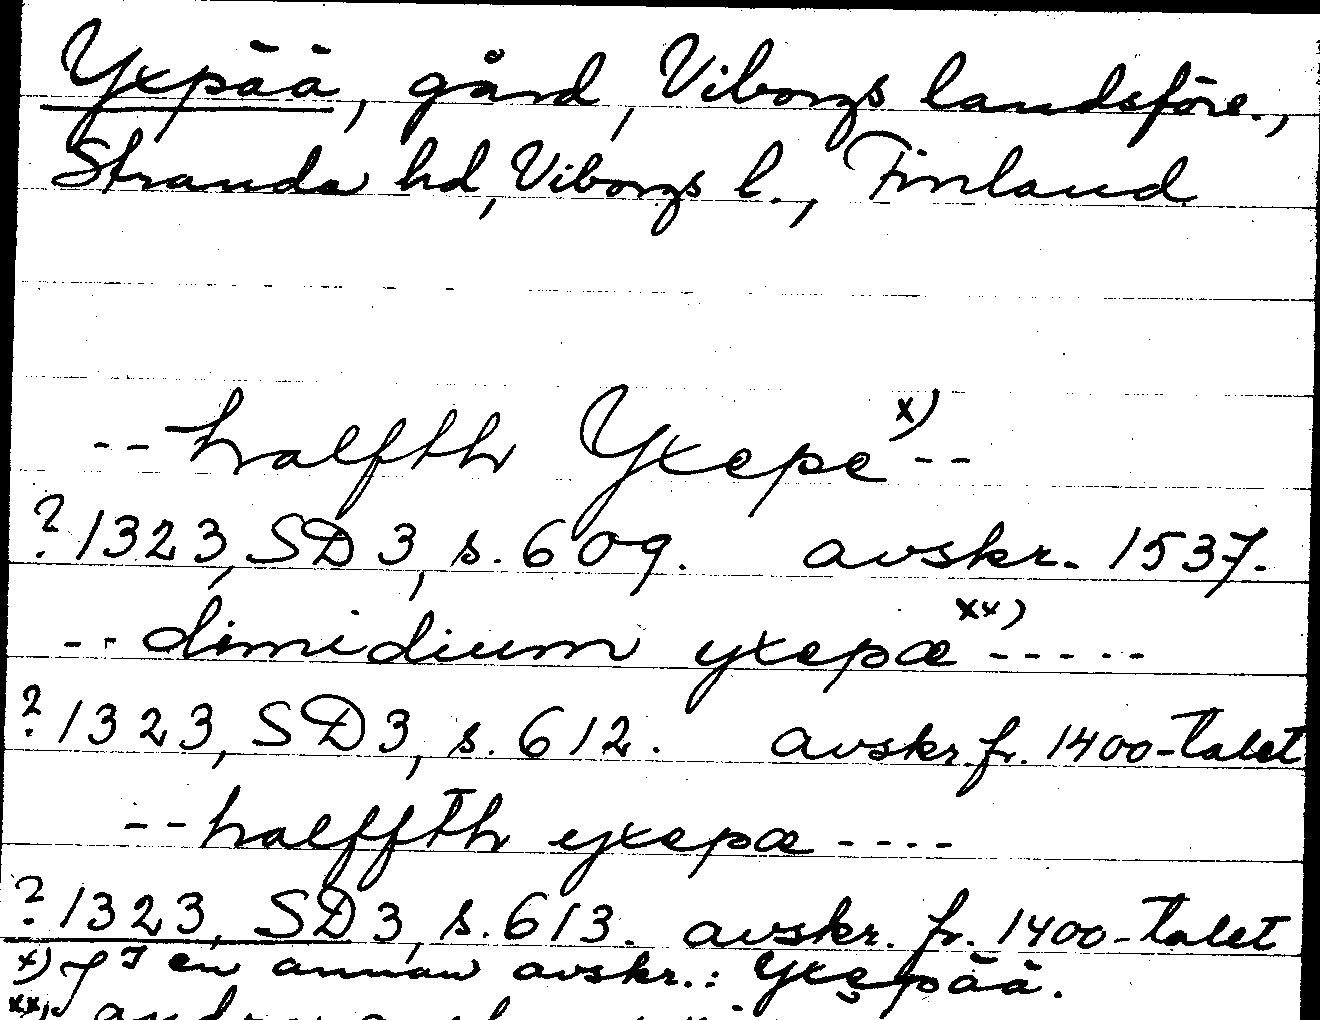 Yxpää, gård, Viborgs landsförs.,
Stranda hd, Viborgs l., Finland
-- halfth Yxepe x) --
? 1323, SD 3, s. 609. avskr. 1537.
-- dimidium yxepæ xx) -----
? 1323, SD 3, s. 612. avskr. fr. 1400-talet
-- halffth yxepæ ----
? 1323, SD 3, s. 613. avskr. fr. 1400-talet
x) I en annan avskr.: Yxepää.
xx)